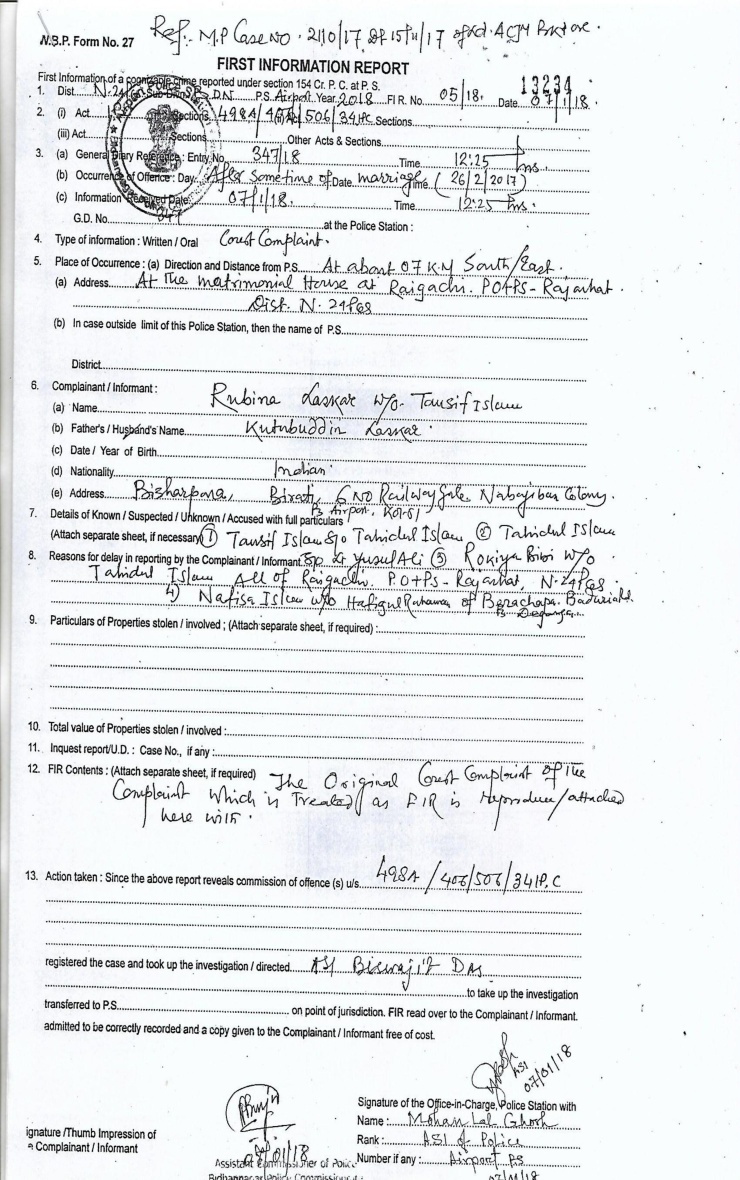 Ref:- M.P Case No. 2110/17, Dt 15/11/17 of Ld. ACJM
W.B.P. Form No. 27
FIRST INFORMATION REPORT
First Information of a cognizable crime reported under section 154 Cr. P. C. at P. S.
13234
1. Dist. N. 24 Sub-Divn. D.N P.S. Airport Year 2018 FIR. No. 05/18. Date 07/1/18.
2. (i) Act Sections 498A/406/506/34 IPC Sections
(iii) Act Sections Other Acts & Sections
3. (a) General Diary Reference : Entry No. 347/18 Time 12:25 hrs.
(b) Occurrence of Offence : Day After sometime of Date marriage Time (26/2/2017)
(c) Information Received Date: 07/1/18. Time 12:25 hrs.
G.D. No. 347 at the Police Station :
4. Type of information : Written / Oral Court Complaint.
5. Place of Occurrence : (a) Direction and Distance from P.S. At about 07 K.M South/East.
(a) Address At the matrimonial House at Raigachi. PO+PS- Rajarhat.
Dist. N. 24 PGS
(b) In case outside limit of this Police Station, then the name of P.S.
District
6. Complainant / Informant :
(a) Name Rubina Laskar W/o- Tausif Islam
(b) Father's / Husband's Name Kutubuddin Laskar.
(c) Date / Year of Birth
(d) Nationality Indian
(e) Address Bisharpara, Birati, 6 NO Railway Gate Nabajiban Colony.
PS Airport, Kol-51
7. Details of Known / Suspected / Unknown / Accused with full particulars
(Attach separate sheet, if necessary) ① Tausif Islam S/o Tahidul Islam ② Tahidul Islam
8. Reasons for delay in reporting by the Complainant / Informant S/o Lt Yusuf Ali ③ Rokiya Bibi W/o
Tahidul Islam All of Raigachi. P.O+PS- Rajarhat, N-24 PGS.
4) Nafisa Islam W/o Hafigul Rahaman of Berachapa. Baduria Rd.
PS Deganga
9. Particulars of Properties stolen / involved ; (Attach separate sheet, if required) :
10. Total value of Properties stolen / involved :
11. Inquest report/U.D. : Case No., if any :
12. FIR Contents : (Attach separate sheet, if required) The Original Court Complaint of the
Complaint which is Treated as FIR is Reproduce/attached
here with.
13. Action taken : Since the above report reveals commission of offence (s) u/s. 498A/406/506/34 IP.C
registered the case and took up the investigation / directed ASI Biswajit Das
to take up the investigation
transferred to P.S. on point of jurisdiction. FIR read over to the Complainant / Informant.
admitted to be correctly recorded and a copy given to the Complainant / Informant free of cost.
ASI
07/01/18
Signature of the Office-in-Charge, Police Station with
Name : Mohan Lal Ghosh
Rank : ASI of Police
Number if any : Airport PS
07/01/18
ignature /Thumb Impression of
Complainant / Informant
Assistant Commissioner of Police
Bidhannagar Police Commissionerate